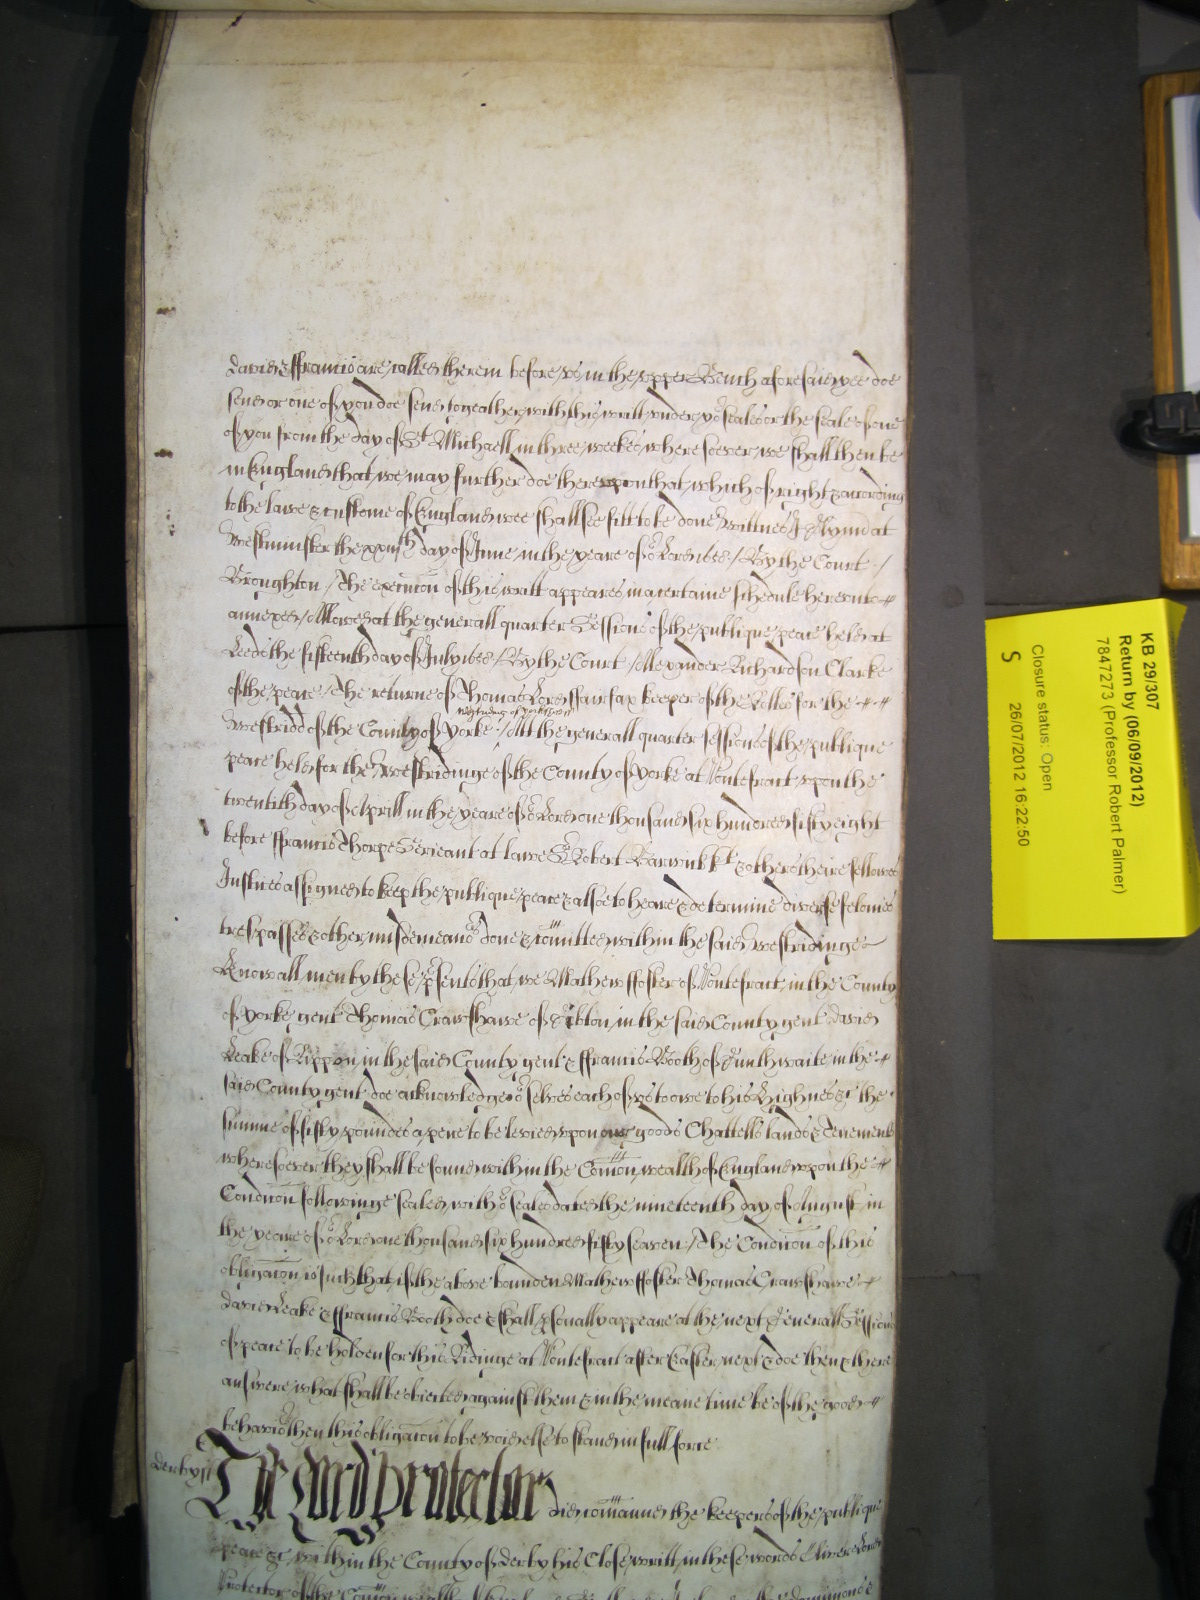 David & ffrancis are called therein before vs in the vpper Bench aforesaid yee doe
send or one of you doe send togeather with this writt vnder yor seales or the seale of one
of you from the day of St Michaell in three weekes where soever we shall then be
in England that we may further doe therevpon that which of right & according
to the lawe & custome of England wee shall see fitt to be done Wittnes J Glynn at
Westminster the day of June in the yeare of or Lord / By the Court /
Broughton / The execucon of this writt appeares in a certaine schedule herevnto
annexed / Allowed at the generall quarter Sessions of the publique peace held at
Leeds the fifteenth day of July / By the Court / Alexander Richardson Clarke
of the peace / The returne of Thomas Lord ffairfax keeper of the Rolles for the
Westridd of the County of Yorke / Att the generall quarter sessions of the publique
peace held for the Westridinge of the County of Yorke at Pontefract vpon the
twentith day of Aprill in the yeare of or Lord one thousand six hundred fifty eight
before ffrancis Thorpe Serieant at lawe Sr Robert Barwick kt & others theire fellowes
Justices assigned to keep the publique peace & alsoe to heare & determine diverse felonies
trespasses & other misdemeanors done & comitted within the said westridinge
Know all men by these psents that we Mathew ffoster of Pontefract in the County
of Yorke gent Thomas Crawshawe of in the said County gent David
Leake of Rippon in the said County gent & ffrancis Booth of Gunthwaite in the
said County gent doe acknowledge or selves each of vs to owe to his Highnes &c the
summe of fifty poundes a pece to be levied vpon our goods Chattells lands & Tenements
wheresoever they shall be found within the Comon wealth of England vpon the
Condicon followinge sealed with or seales dated the nineteenth day of August in
the yeare of or Lord one thousand six hundred fifty seaven / The Condicon of this
obligacon is such that if the above bounden Mathew ffoster Thomas Crawshawe
David Leake & ffrancis Booth doe & shall psonally appeare at the next Generall Sessions
of peace to be holden for this Ridinge at Pontefract after Easter next & doe then & there
answere what shall be obiected against them & in the meane time be of the good
behavior then this obligacon to be void else to stand in full force
derby ss The Lord Protector did comaund the keepers of the publique
peace &c within the County of derby his Close writt in these words Oliver Lord
Protector of the Comon wealth of England
KB 29/307
Return by (06/09/2012)
7847273 (Professor Robert Palmer)
Closure status: Open
S 26/07/2012 16:22:50